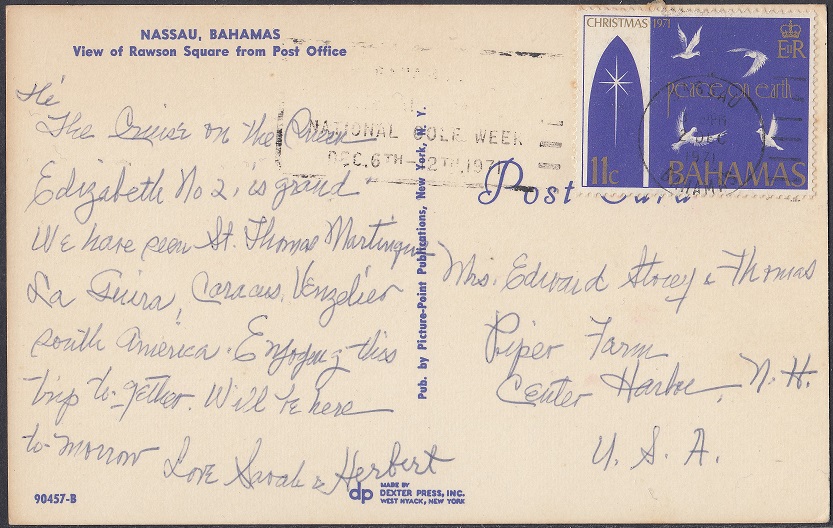 NASSAU, BAHAMAS
View of Rawson Square from Post Office
Hi
The Cruise on the Queen
Edizabeth No 2, is grand
We have seen St. Thomas Martinique
La Guira, Caracus, Venzelier
south America. Enjoying this
trip to-gether. Will be here
to-morrow
Love Sarah & Herbert
90457-B
Pub. by Picture-Point Publications, New York, N. Y.
NATIONAL GOLF WEEK
DEC. 6TH-12TH, 1971
CHRISTMAS 1971
EIIR
peace on earth
11c
BAHAMAS
NASSAU
DEC
1971
BAHAMAS
Post Card
Mrs. Edward Storey & Thomas
Piper Farm
Center Harbor, N. H.
U. S. A.
dp
MADE BY
DEXTER PRESS, INC.
WEST NYACK, NEW YORK